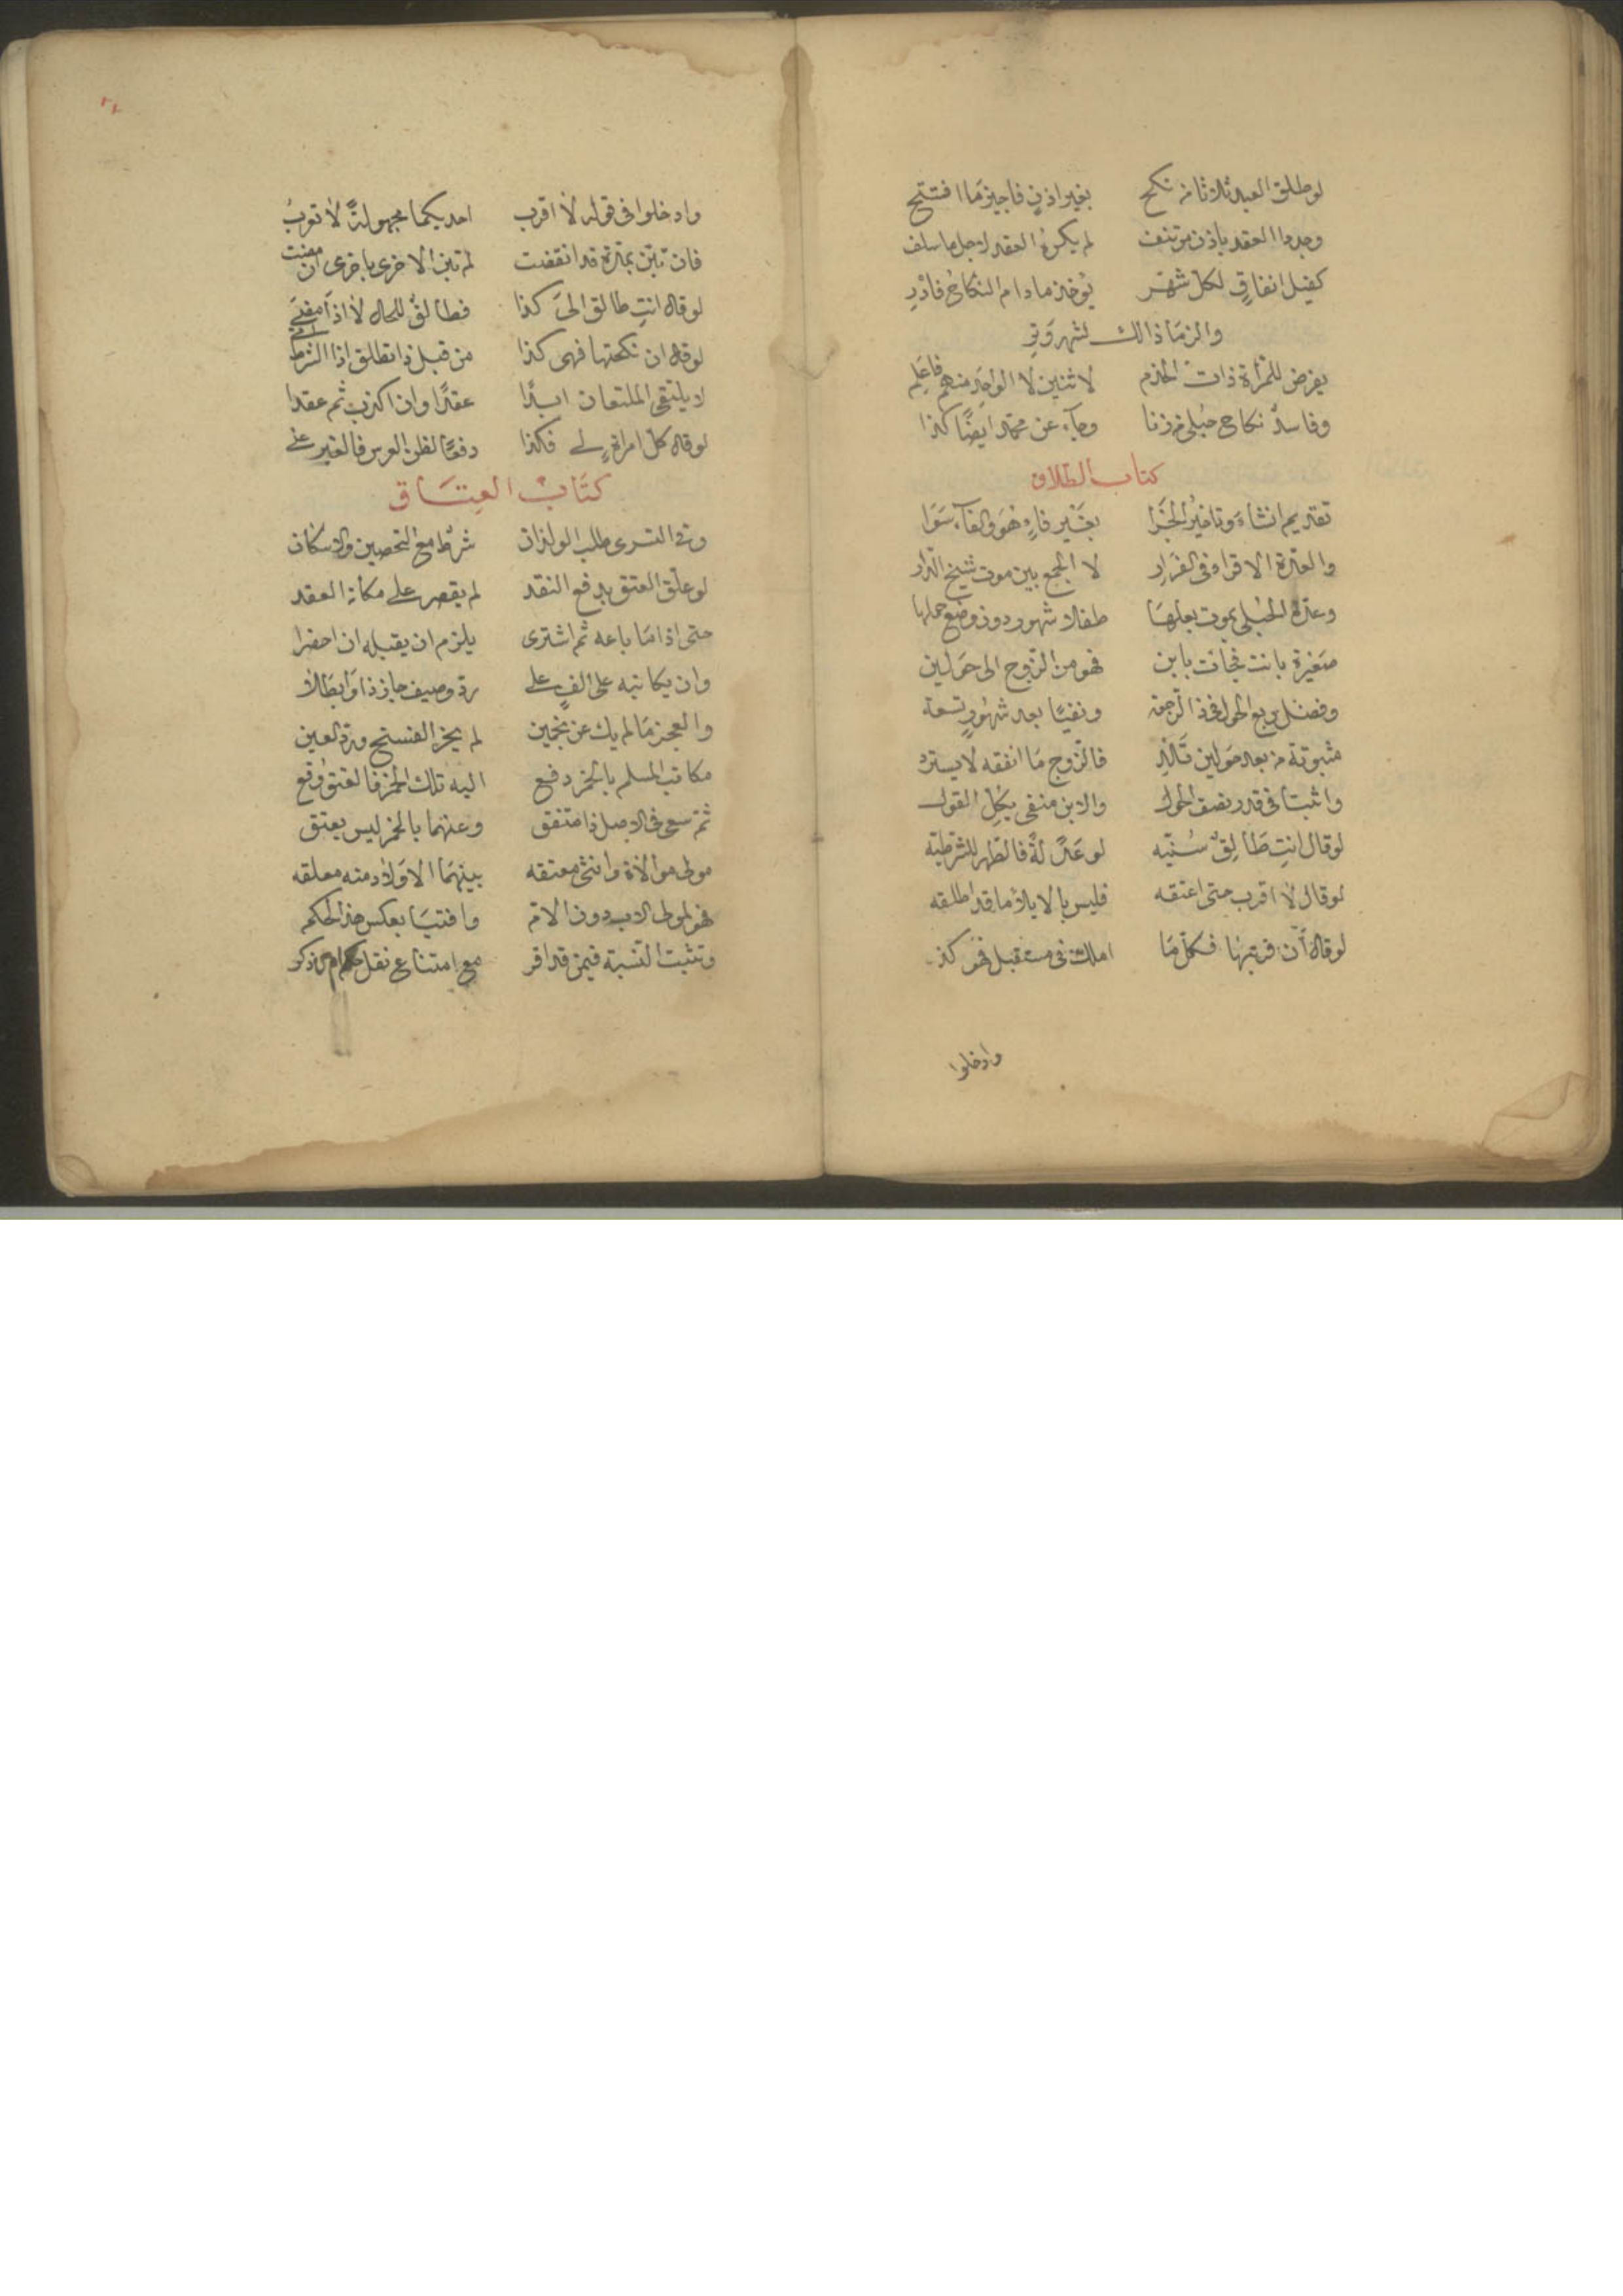 لو طلق العبد ثلاثا من نكح بغير اذن فاجيز ما افتتح
وجددا العقد باذن مؤتنف لم يكره العقد لاجل ما سلف
كفيل انفاق لكل شهر يؤخذ ما دام النكاح فادر
والزما ذالك لشهر وتر
يفرض للمرأة ذات الخدم لاثنين لا الواحد منهم فاعلم
وفاسد نكاح حبلى من زنا وجاء عن محمد ايضا كذا
كتاب الطلاق
تقديم انشاء وتاخير الجزا بغير فاء وهو والفاء سوا
والعدة الاقراء في الفرار لا الجمع بين موت شيخ الدار
وعدة الحبلى بموت بعلها طفلا شهور دون وضع حملها
صغيرة بانت فجأت بابن فهو من الزوج الى حولين
وفضل ربع الحول في ذا الرجعه ونفيا بعد شهور تسعه
مثبوتة من بعد حولين تلد فالزوج ما انفقه لا يسترد
واثبتا في قدر نصف الحول والابن منفي بكل القول
لو قال انت طالق سنيه لو عد له فالطهر للشرطيه
لو قال لا اقرب حتى اعتقه فليس بالايلا ما قد اطلقه
لو قال ان قربتها فكل ما املك في مستقبل فهو كذا
وادخلوا
وادخلوا في قوله لا اقرب احديكما مجهولة لا توب
فان تبن بمدة قد انقضت لم تبن الاخرى باخرى ان مضت
لو قال انت طالق الى كذا فطالق للحال لا اذا مضى
لو قال ان نكحتها فهي كذا من قبل ذا تطلق اذا الشرط
لا يلتقي الملتعان ابدا عقدا وان اكذب ثم عقدا
لو قال كل امرأة لي فكذا دفعا لظن العرس فالغير عني
كتاب العتاق
وفي التسري طلب الولدان شرط مع التحصين والاسكان
لو علق العتق بدفع النقد لم يقصر على مكان العقد
حتى اذا ما باعه ثم اشترى يلزم ان يقبله ان احضرا
وان يكاتبه على الف على رد وصيف جاز ذا وابطلا
والعجز ما لم يك عن نجمين لم يجز الفسخ ورد العين
مكاتب المسلم بالخمر دفع اليه تلك الخمر فالعتق وقع
ثم سعى في الاصل ذا متفق وعنهما بالخمر ليس يعتق
مولى موالاة وانثى معتقه بينهما الاولاد منه معلقه
فهو لمولى الاب دون الام وافتيا بعكس هذا الحكم
وتثبت النسبة فيمن قد اقر مع امتناع نقل حكم ذكر